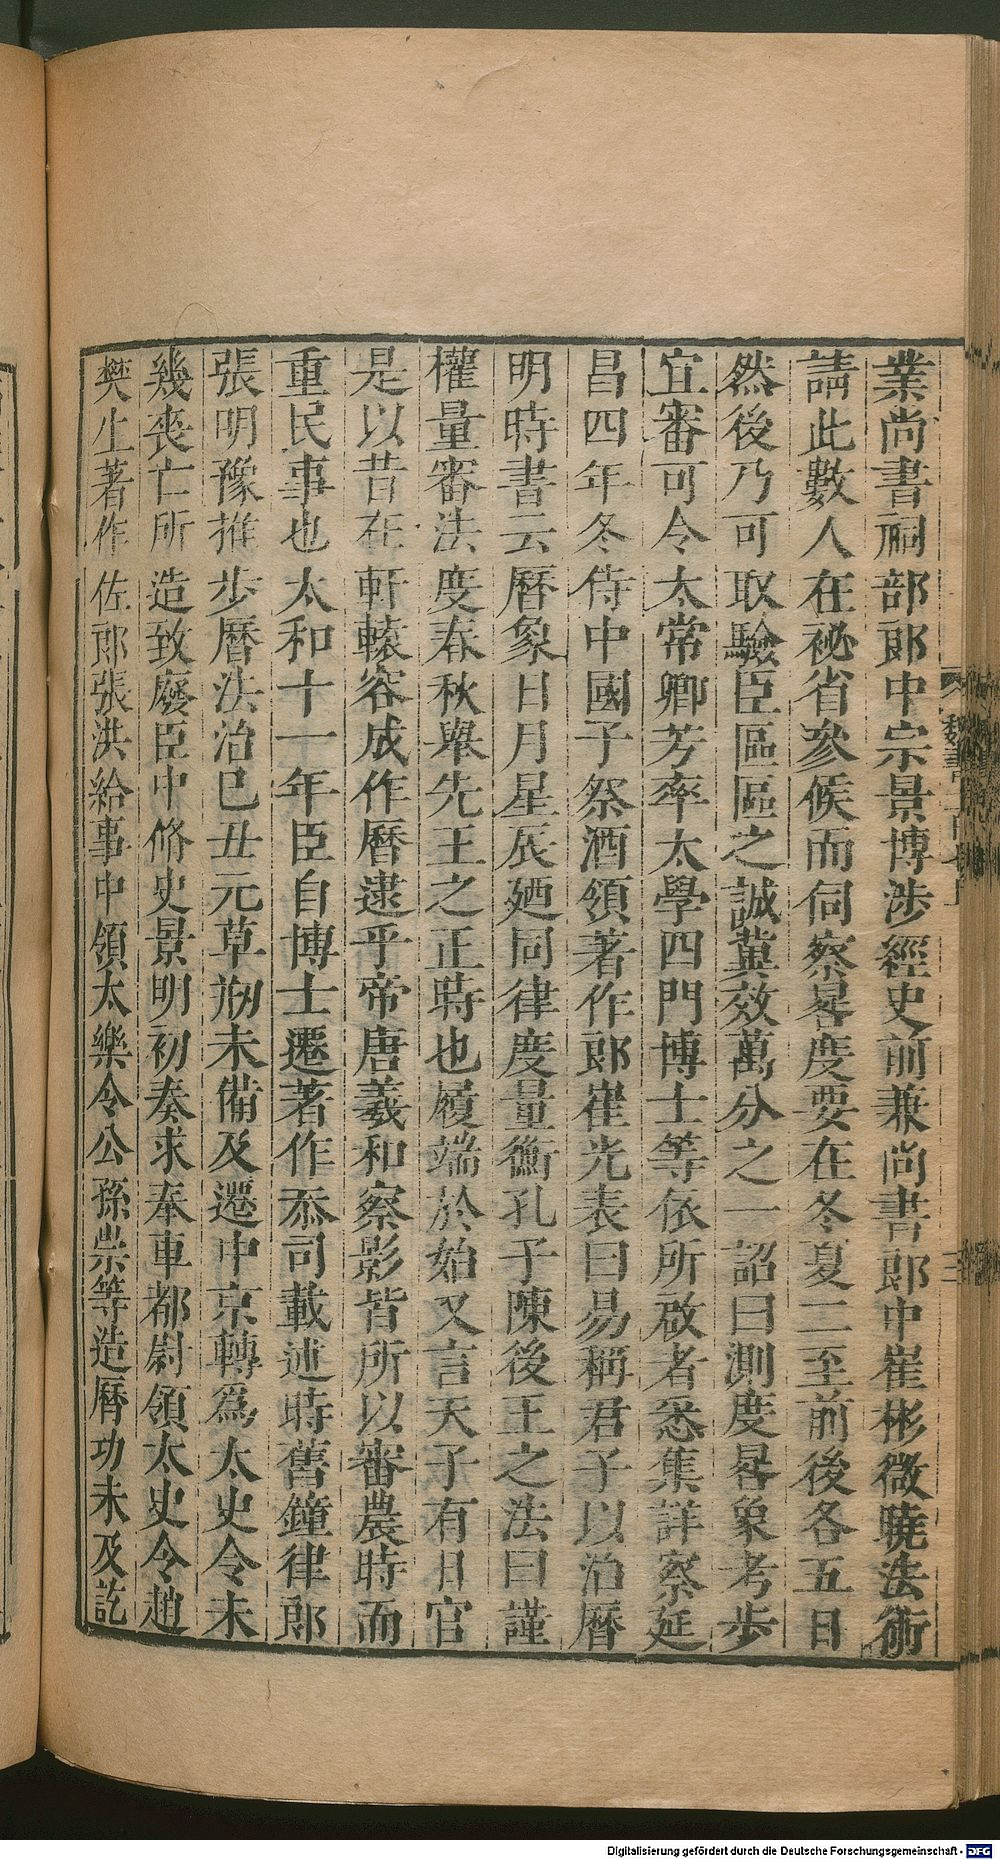 業尚書祠部郎中宗景博涉經史前兼尚書郎中崔彬微曉法術
請此數人在祕省參候而伺察晷度要在冬夏二至前後各五日
然後乃可取驗臣區區之誠冀效萬分之一詔曰測度晷象考步
宜審可令太常卿芳率太學四門博士等依所啟者悉集詳察延
昌四年冬侍中國子祭酒領著作郎崔光表曰易稱君子以治曆
明時書云曆象日月星辰廼同律度量衡孔子陳後王之法曰謹
權量審法度春秋舉先王之正時也履端於始又言天子有日官
是以昔在軒轅容成作曆逮乎帝唐羲和察影皆所以審農時而
重民事也太和十一年臣自博士遷著作忝司載述時舊鐘律郎
張明豫推步曆法治巳丑元草剏未備及遷中京轉爲太史令未
幾喪亡所造致廢臣中脩史景明初奏求奉車都尉領太史令趙
樊生著作佐郎張洪給事中領太樂令公孫崇等造曆功未及訖
魏書一百七上
Digitalisierung gefördert durch die Deutsche Forschungsgemeinschaft - DFG